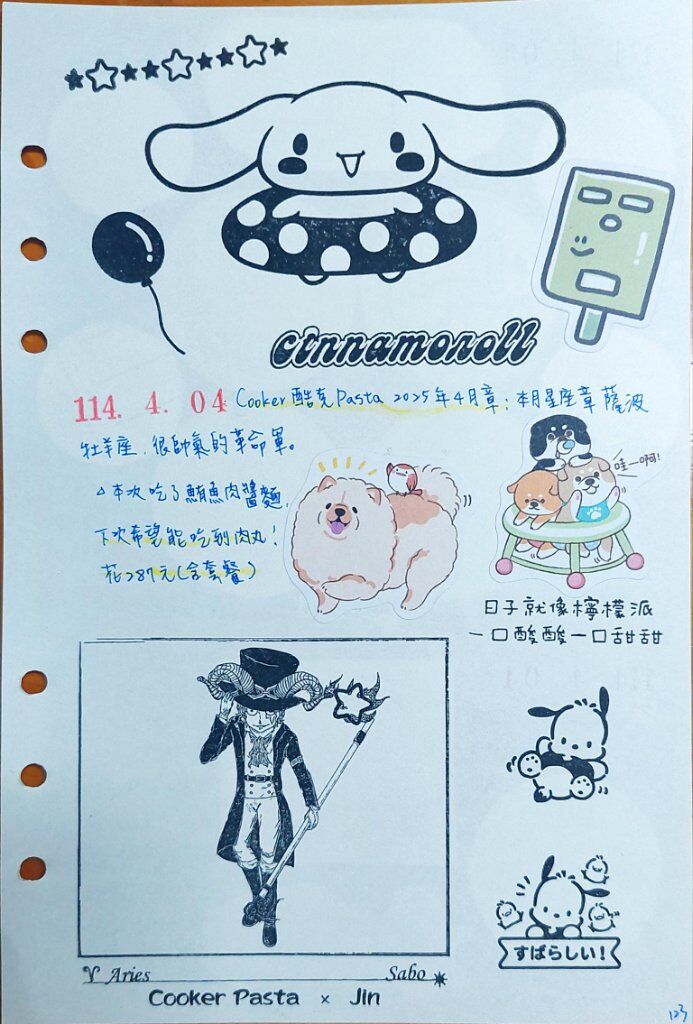 cinnamoroll
114. 4. 04 Cooker 酷克Pasta 2025年4月章：本月星座章 薩波
牡羊座，很帥氣的革命軍。
△本次吃了鮪魚肉醬麵，
下次希望能吃到肉丸！
花287元(含套餐)
哇－啊!
日子就像檸檬派
一口酸酸一口甜甜
すばらしい!
♈ Aries
Sabo
Cooker Pasta × Jin
123